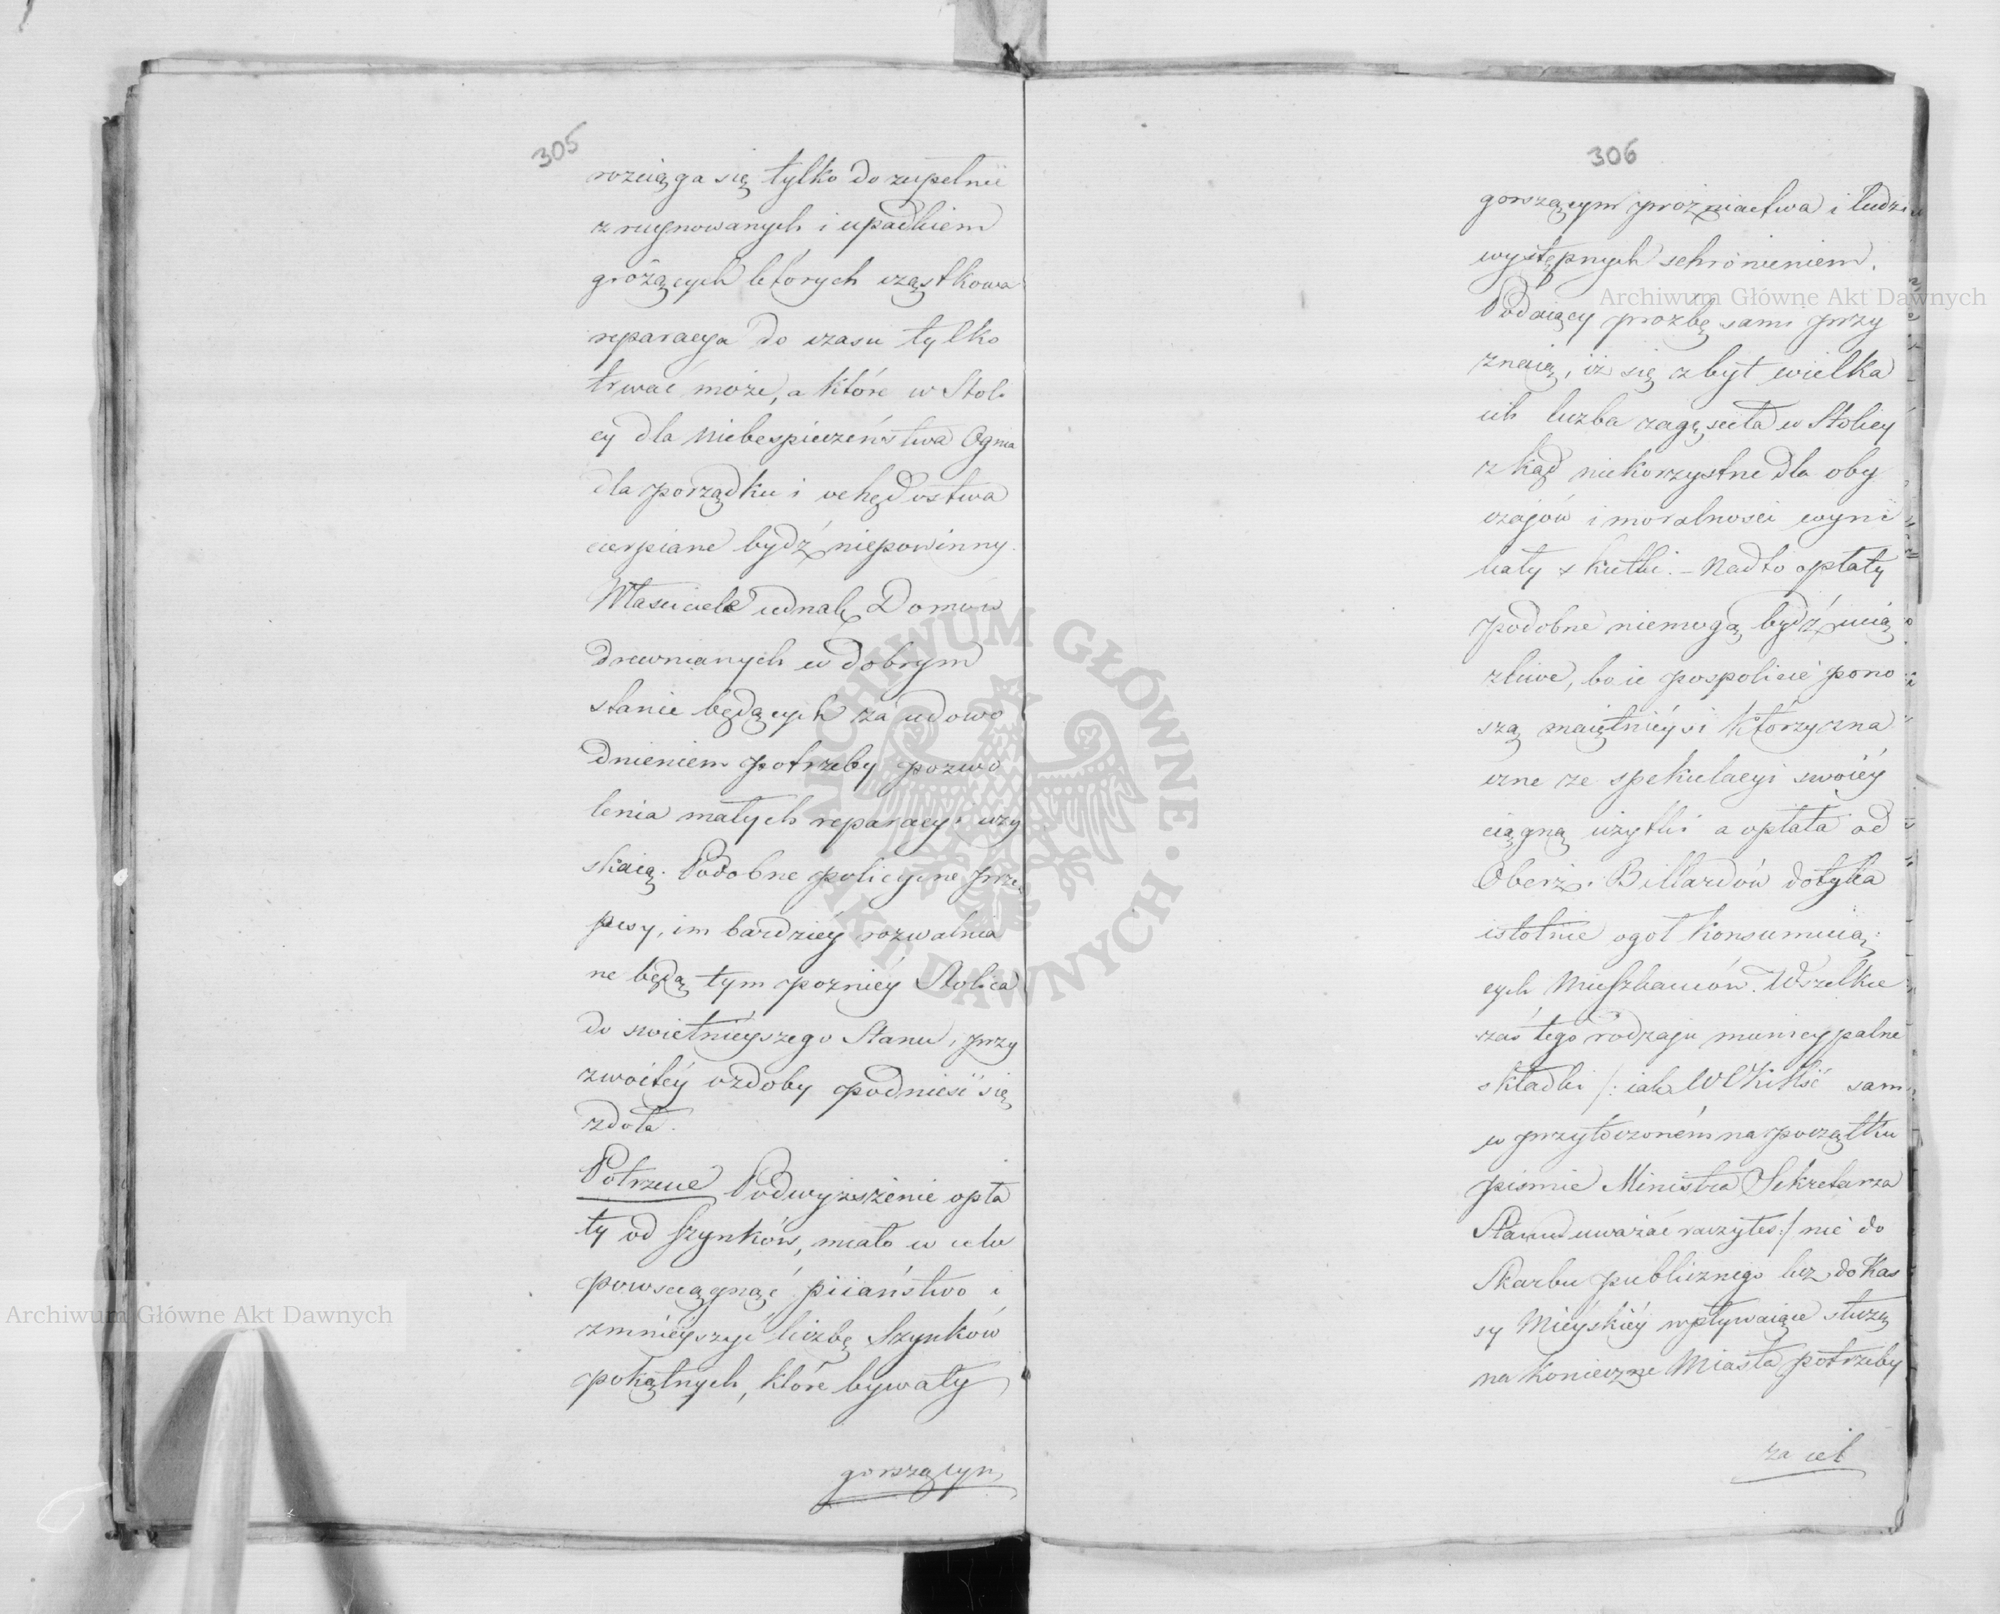 305
rozciąga się tylko do zupełnie
zrugnowanych i upadkiem
grożących których cząstkowa
reparacya do czasu tylko
trwać może, a które w Stoli
cy dla niebespieczeństwa Ognia
dla porządku i ochędostwa
cierpiane bydź niepowinny.
Własciciele iednak Domów
drewnianych w dobrym
stanie będących za udowo
dnieniem potrzeby pozwo
lenia małych reparacyi uzy
skaią. Podobne policyine prze
pisy, im bardziéy rozwalnia
ne będą tym pozniéy Stolica
do swietniéyszego Stanu, przy
zwoitéy ozdoby podnieść się
zdoła.
Potrzecie Podwyższenie opła
ty od szynków, miało w celu
powsciągnąć piiaństwo i
zmnieyszyć liczbę Szynków
pokątnych, które bywały
gorszącym
306
gorszącym prożniactwa i ludzi
występnych schronieniem.
Podaiący prozbę sami przy
znaią, iż się zbyt wielka
ich liczba zagęsciła w Stolicy
zkąd niekorzystne dla oby
czajów i moralnosci wyni
kały skutki. – Nadto opłaty
podobne niemogą bydź ucią
zliwe, bo ie pospolicie pono
szą maiętniéysi którzy zna
czne ze spekulacyi swoiéy
ciągną użytki a opłata od
Oberż i Billardów dotyka
istotnie ogół konsumuią:
cych Mieszkańców. Wszelkie
zaś tego rodzaju municypalne
składki /: iak WCKMść sam
w przytoczoném na początku
pismie Ministra Sekretarza
Stanu uważać raczyłeś :/ nie do
Skarbu publicznego lecz do Kas
sy Miéyskiéy wpływaiące służą
na konieczne Miasta potrzeby
za cel
Archiwum Główne Akt Dawnych
Archiwum Główne Akt Dawnych
ARCHIWUM GŁÓWNE · AKT DAWNYCH ·